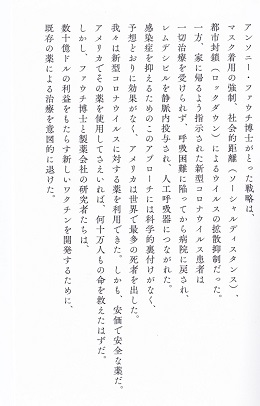 アンソニー・ファウチ博士がとった戦略は、
マスク着用の強制、社会的距離(ソーシャルディスタンス)
都市封鎖(ロックダウン)によるウイルスの拡散抑制だった。
一方、家に帰るよう指示された新型コロナウイルス患者は
一切治療を受けられず、呼吸困難に陥ってから病院に戻され、
レムデシビルを静脈内投与され、人工呼吸器につながれた。
感染症を抑えるためのこのアプローチには科学的裏付けがなく、
予想どおりに効果がなく、アメリカは世界で最多の死者を出した。
我々は新型コロナウイルスに対する薬を利用できた。しかも、安価で安全な薬だ。
アメリカでその薬を使用してさえいれば、何十万人もの命を救えたはずだ。
しかし、ファウチ博士と製薬会社の研究者たちは、
数十億ドルの利益をもたらす新しいワクチンを開発するために、
既存の薬による治療を意図的に退けた。